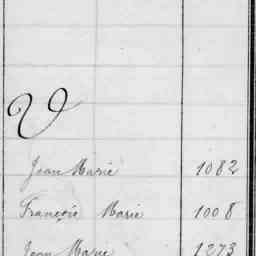 V
Jean Marie 1082
François Marie 1008
Jean Marie 1273